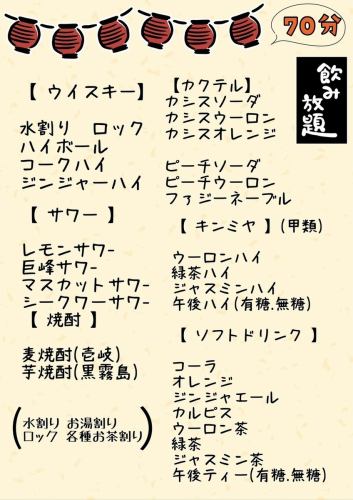 70分
飲み放題
【 ウイスキー】
水割り ロック
ハイボール
コークハイ
ジンジャーハイ
【 サワー 】
レモンサワー
巨峰サワー
マスカットサワー
シークワーサワー
【 焼酎 】
麦焼酎(壱岐)
芋焼酎(黒霧島)
(水割り お湯割り
ロック 各種お茶割り)
【カクテル】
カシスソーダ
カシスウーロン
カシスオレンジ
ピーチソーダ
ピーチウーロン
ファジーネーブル
【 キンミヤ 】(甲類)
ウーロンハイ
緑茶ハイ
ジャスミンハイ
午後ハイ(有糖.無糖)
【 ソフトドリンク 】
コーラ
オレンジ
ジンジャエール
カルピス
ウーロン茶
緑茶
ジャスミン茶
午後ティー(有糖.無糖)